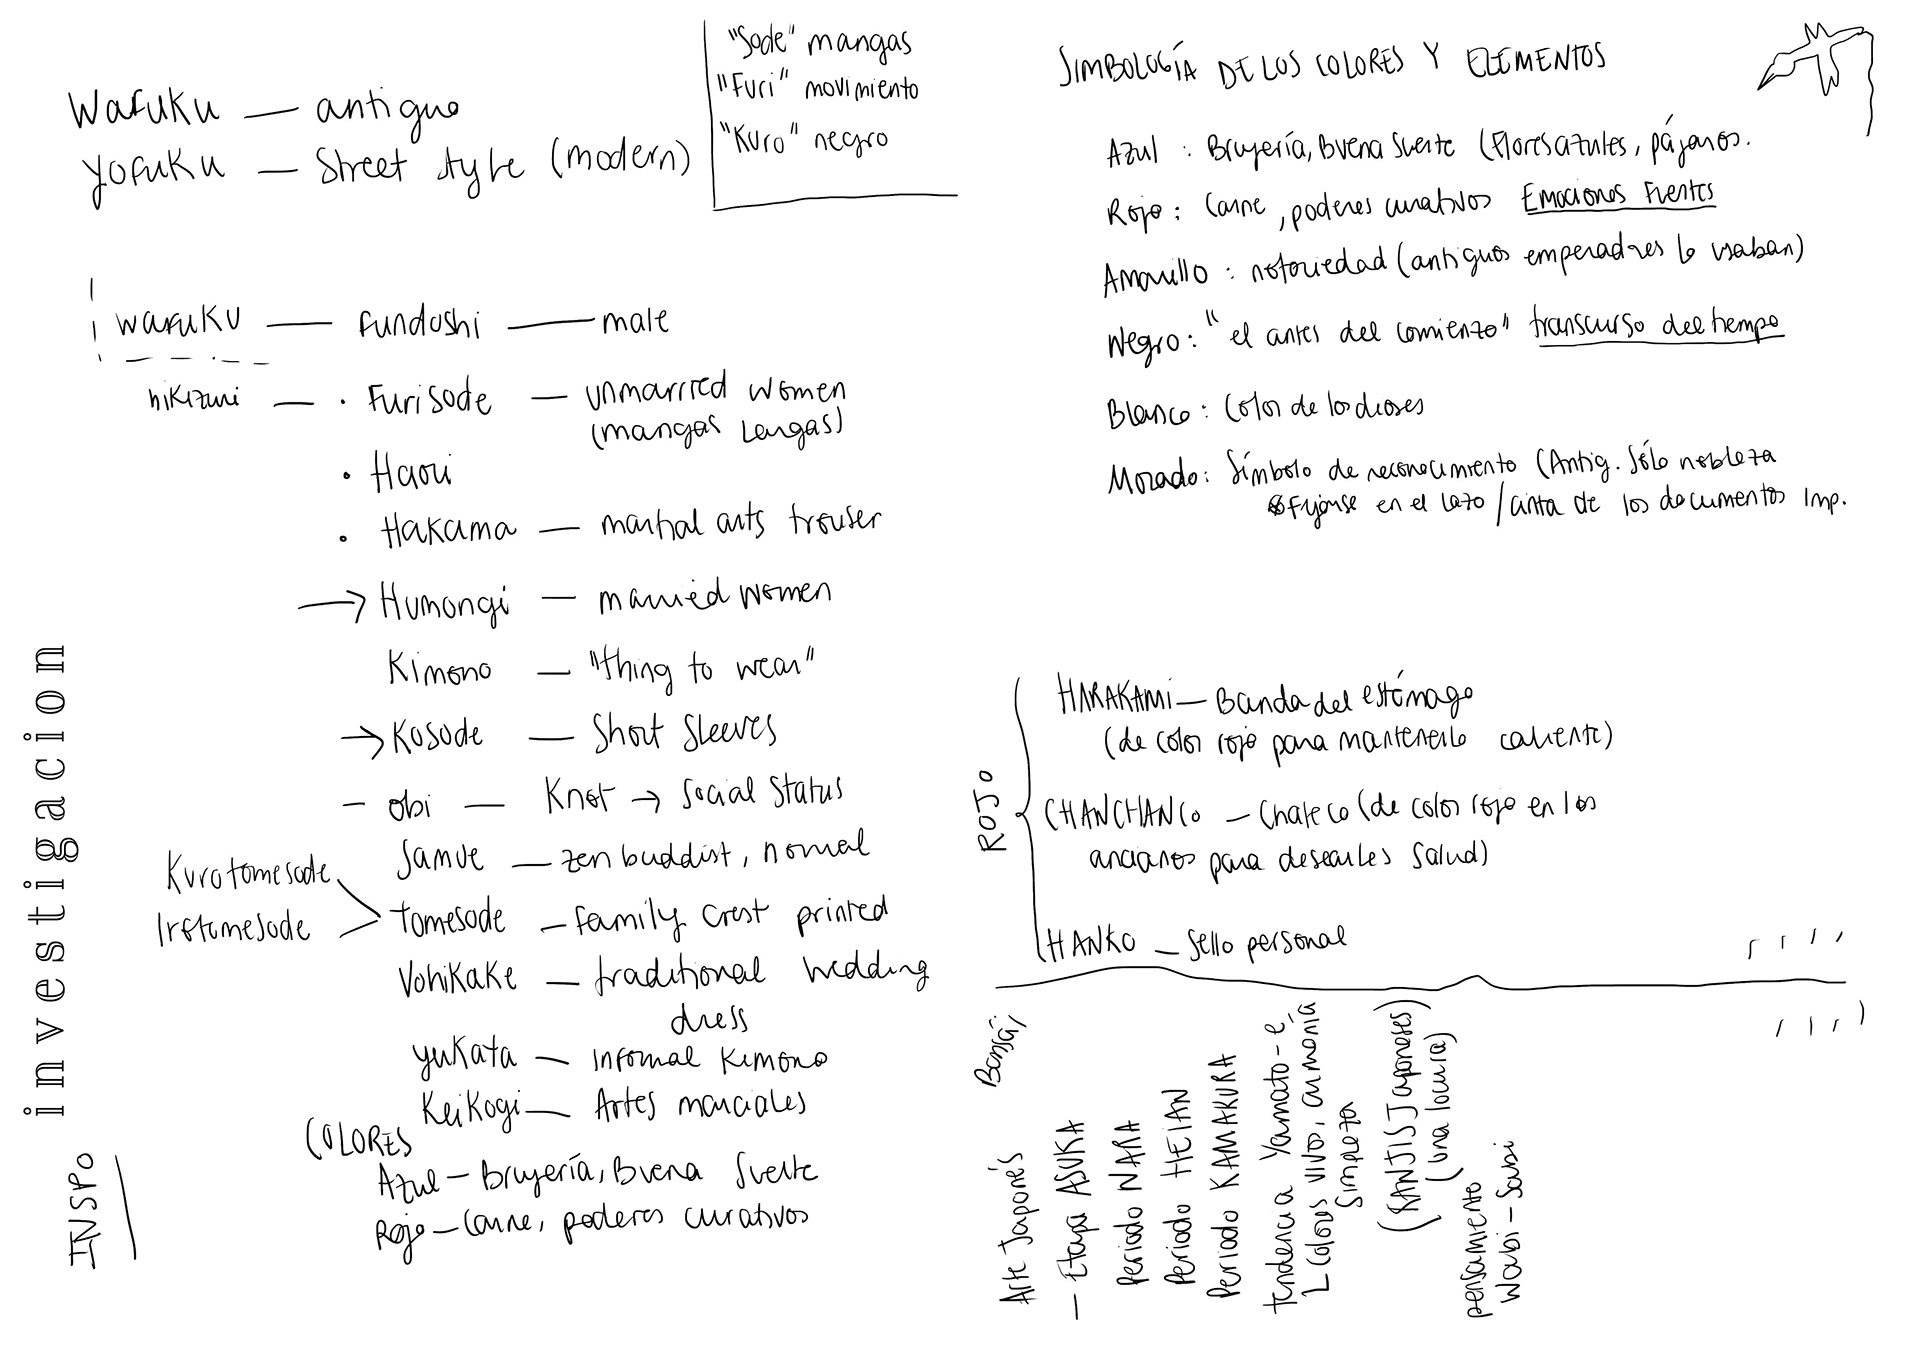 Wafuku — antiguo
Yofuku — Street style (modern)
"Sode" mangas
"Furi" movimiento
"Kuro" negro
wafuku — fundoshi — male
hikizuri — · Furisode — unmarried women
(mangas largas)
· Haori
· Hakama — martial arts trouser
→ Humongi — married women
Kimono — "thing to wear"
→ Kosode — Short Sleeves
– obi — Knot → Social Status
Samue — zen buddist, normal
Kurotomesode
Irotomesode
tomesode — family crest printed
Vohikake — traditional wedding
dress
yukata — informal kimono
Keikogi — Artes marciales
COLORES
Azul — Brujería, Buena Suerte
Rojo — Carne, poderes curativos
investigacion
INSPO
SIMBOLOGÍA DE LOS COLORES Y ELEMENTOS
Azul : Brujería, Buena Suerte (Flores azules, pájaros.
Rojo : Carne, poderes curativos Emociones Fuertes
Amarillo : notoriedad (antiguos emperadores lo usaban)
Negro : "el antes del comienzo" transcurso del tiempo
Blanco : Color de los dioses
Morado : Símbolo de reconocimiento (Antig. Sólo nobleza
Fijarse en el lazo / cinta de los documentos Imp.
ROJO
HARAKAMI — Banda del estómago
(de color rojo para mantenerlo caliente)
CHANCHANCO — Chaleco (de color rojo en los
ancianos para desearles Salud)
HANKO — Sello personal
Bonsái
Arte Japonés
— Etapa ASUKA
Periodo NARA
Periodo HEIAN
Periodo KAMAKURA
tendencia Yamato - e
Colores vivos, armonía
Simpleza
(KANJIS Japoneses)
(una locura)
pensamiento
Wabi - Sabi